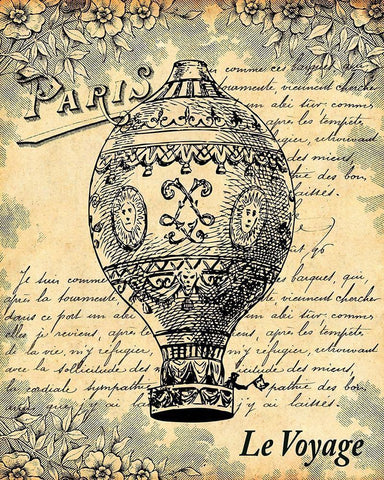 PARIS
comme ces barques, qui
tourmente, viennent chercher
un abri sûr; comme
après les tempêtes
refugier, retrouvant
des mieux,
des bon
laissés.
96
Je suis comme les barques, qui
après la tourmente, viennent chercher
dans ce port un abri sûr; comme
elles je reviens, après les tempêtes
de la vie, m'y réfugier, m'y réfugier, retrouvant
avec la sollicitude des des mieux,
la cordiale sympathie sympathie des bon
que j'y ai j'y ai laissés.
Le Voyage